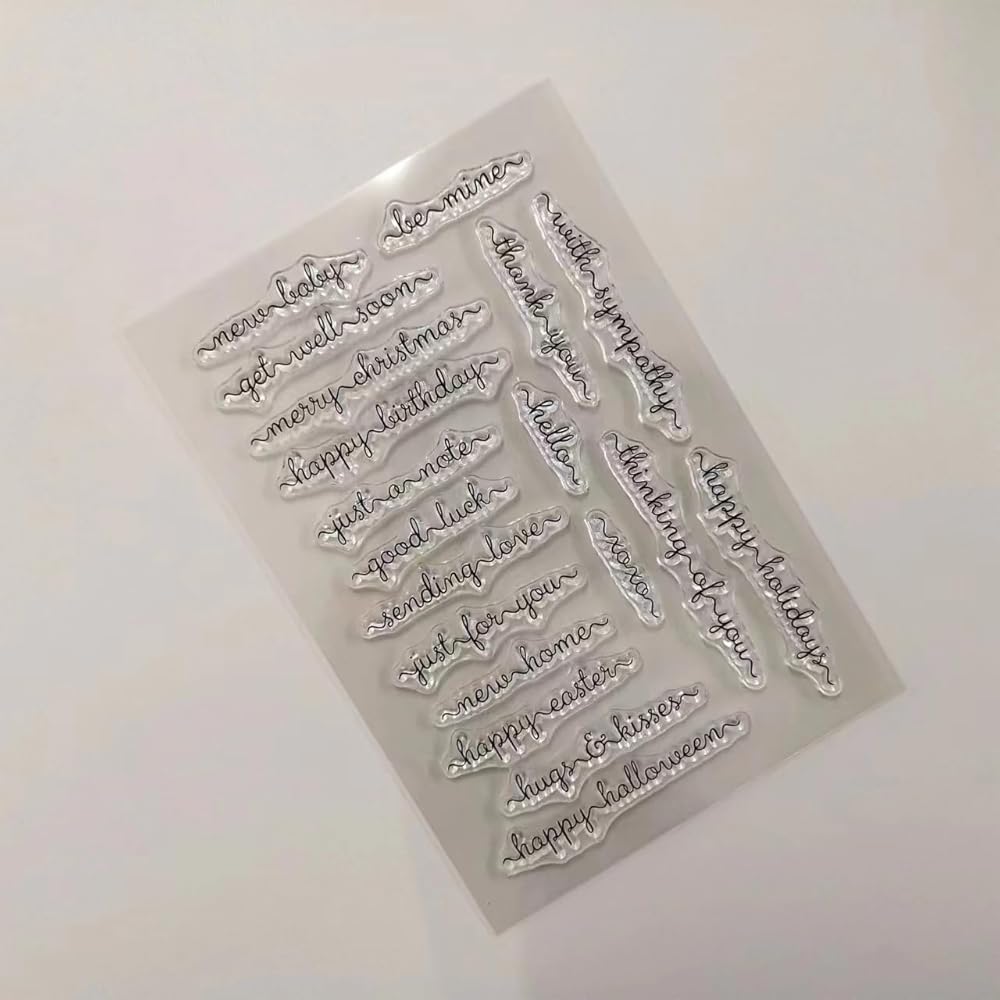 be mine
new baby
get well soon
merry christmas
happy birthday
just a note
good luck
sending love
just for you
new home
happy easter
hugs & kisses
happy halloween
thank you
with sympathy
hello
thinking of you
happy holidays
xoxo